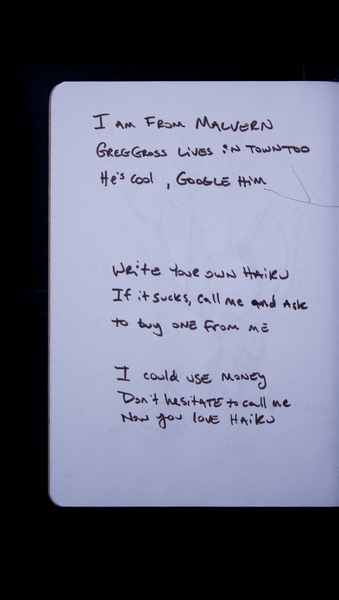 I AM FROM MALVERN
GREGGROSS LIVES IN TOWN TOO
He's cool, GOOGLE HIM
WRITE YOUR OWN HAIKU
If it sucks, call me and ASK
to buy ONE FROM ME
I could USE MONEY
Don't hesiTATE to call me
Now you LOVE HAIKU